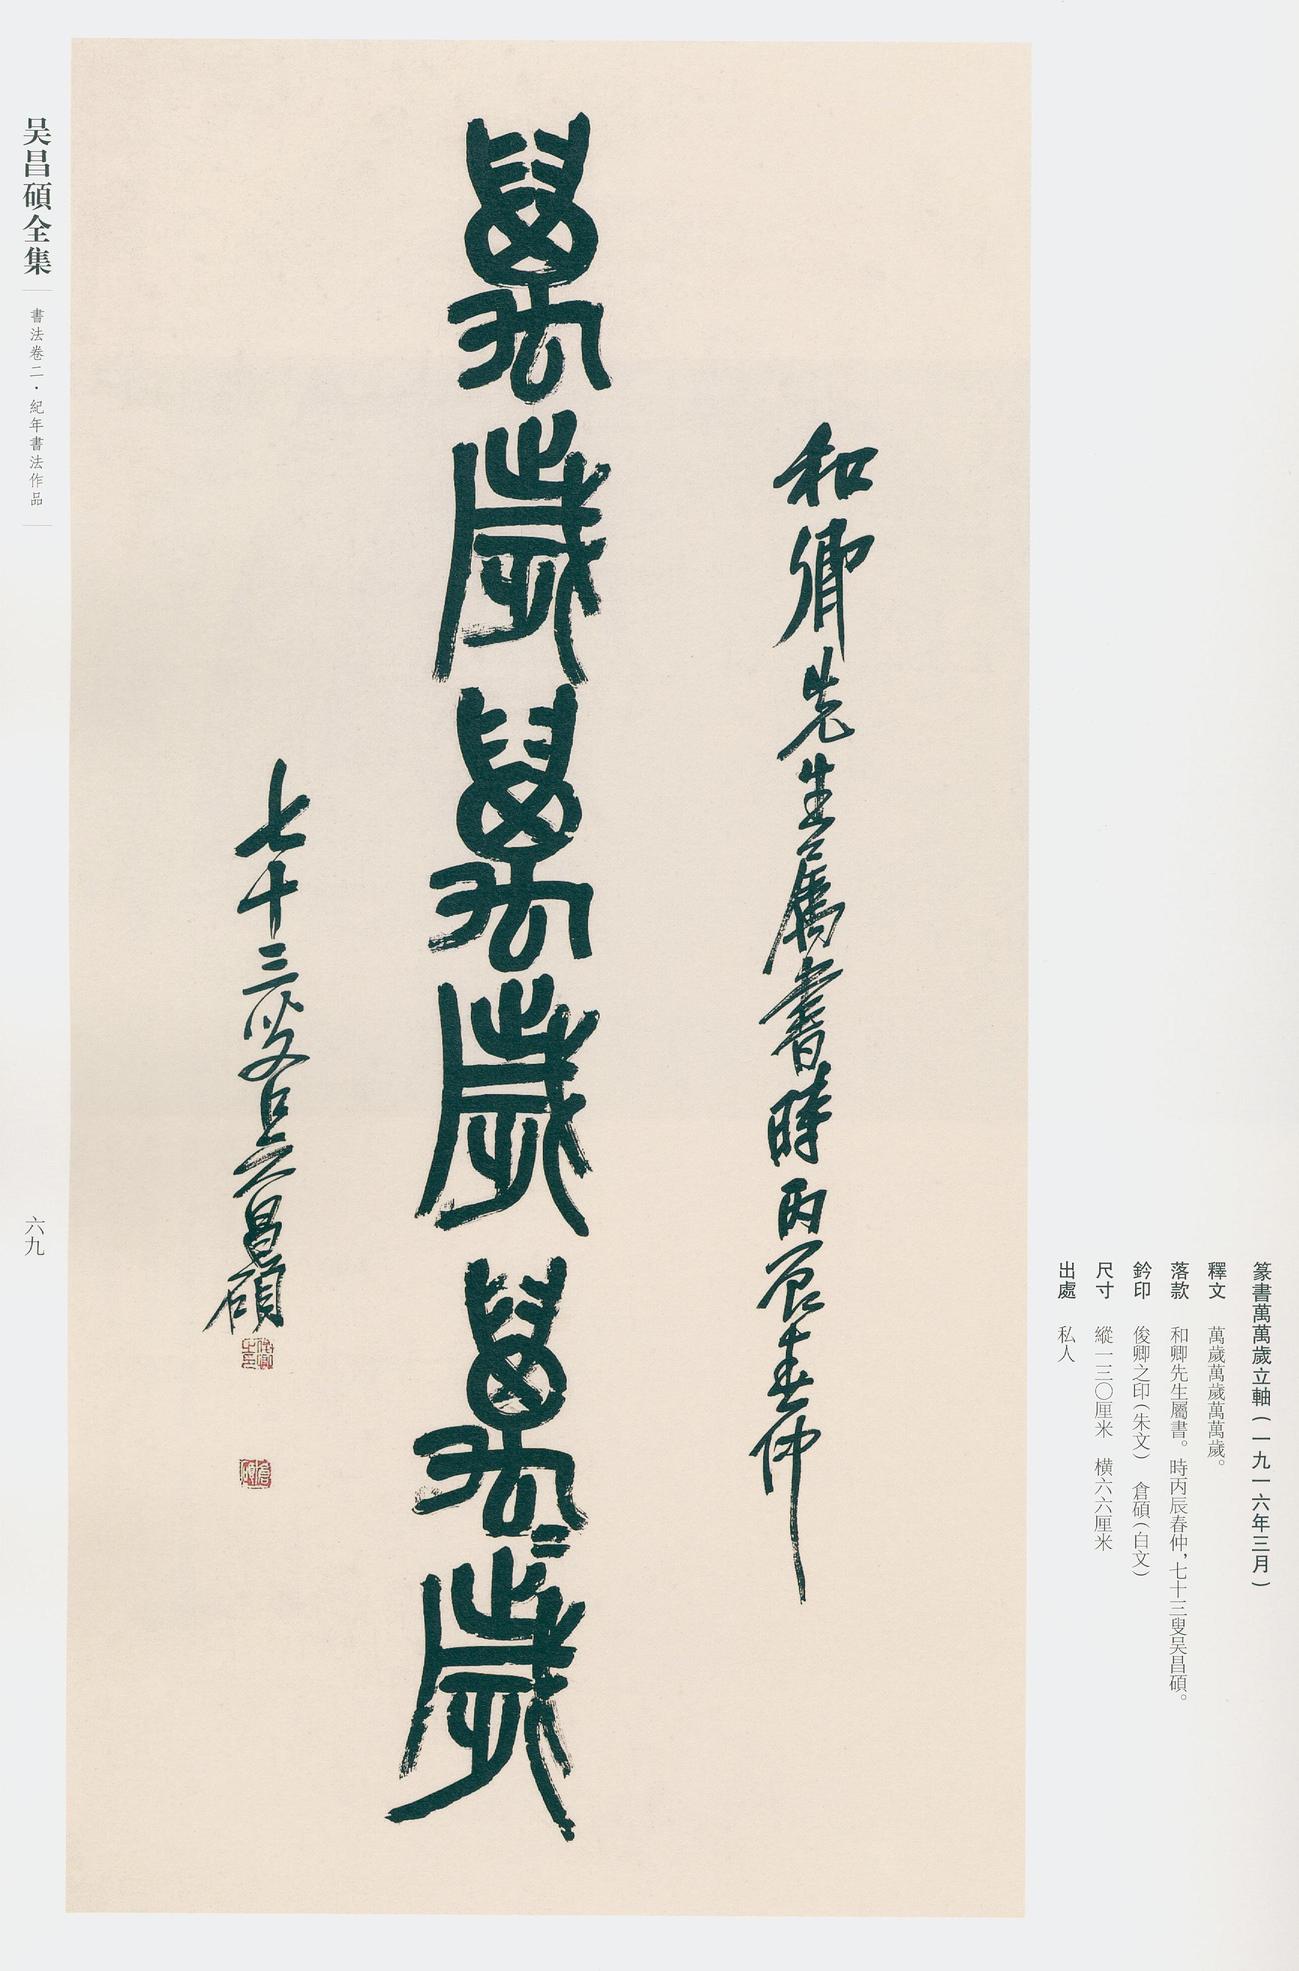 篆書萬萬歲立軸(一九一六年三月)
釋文 萬歲萬歲萬萬歲。
落款 和卿先生屬書。時丙辰春仲,七十三叟吴昌碩。
鈐印 俊卿之印(朱文) 倉碩(白文)
尺寸 縱一三〇厘米 橫六六厘米
出處 私人
和卿先生屬書時丙辰春仲
萬歲萬歲萬〻歲
七十三叟吴昌碩
俊卿之印
倉碩
吴昌碩全集
書法卷二·紀年書法作品
六九